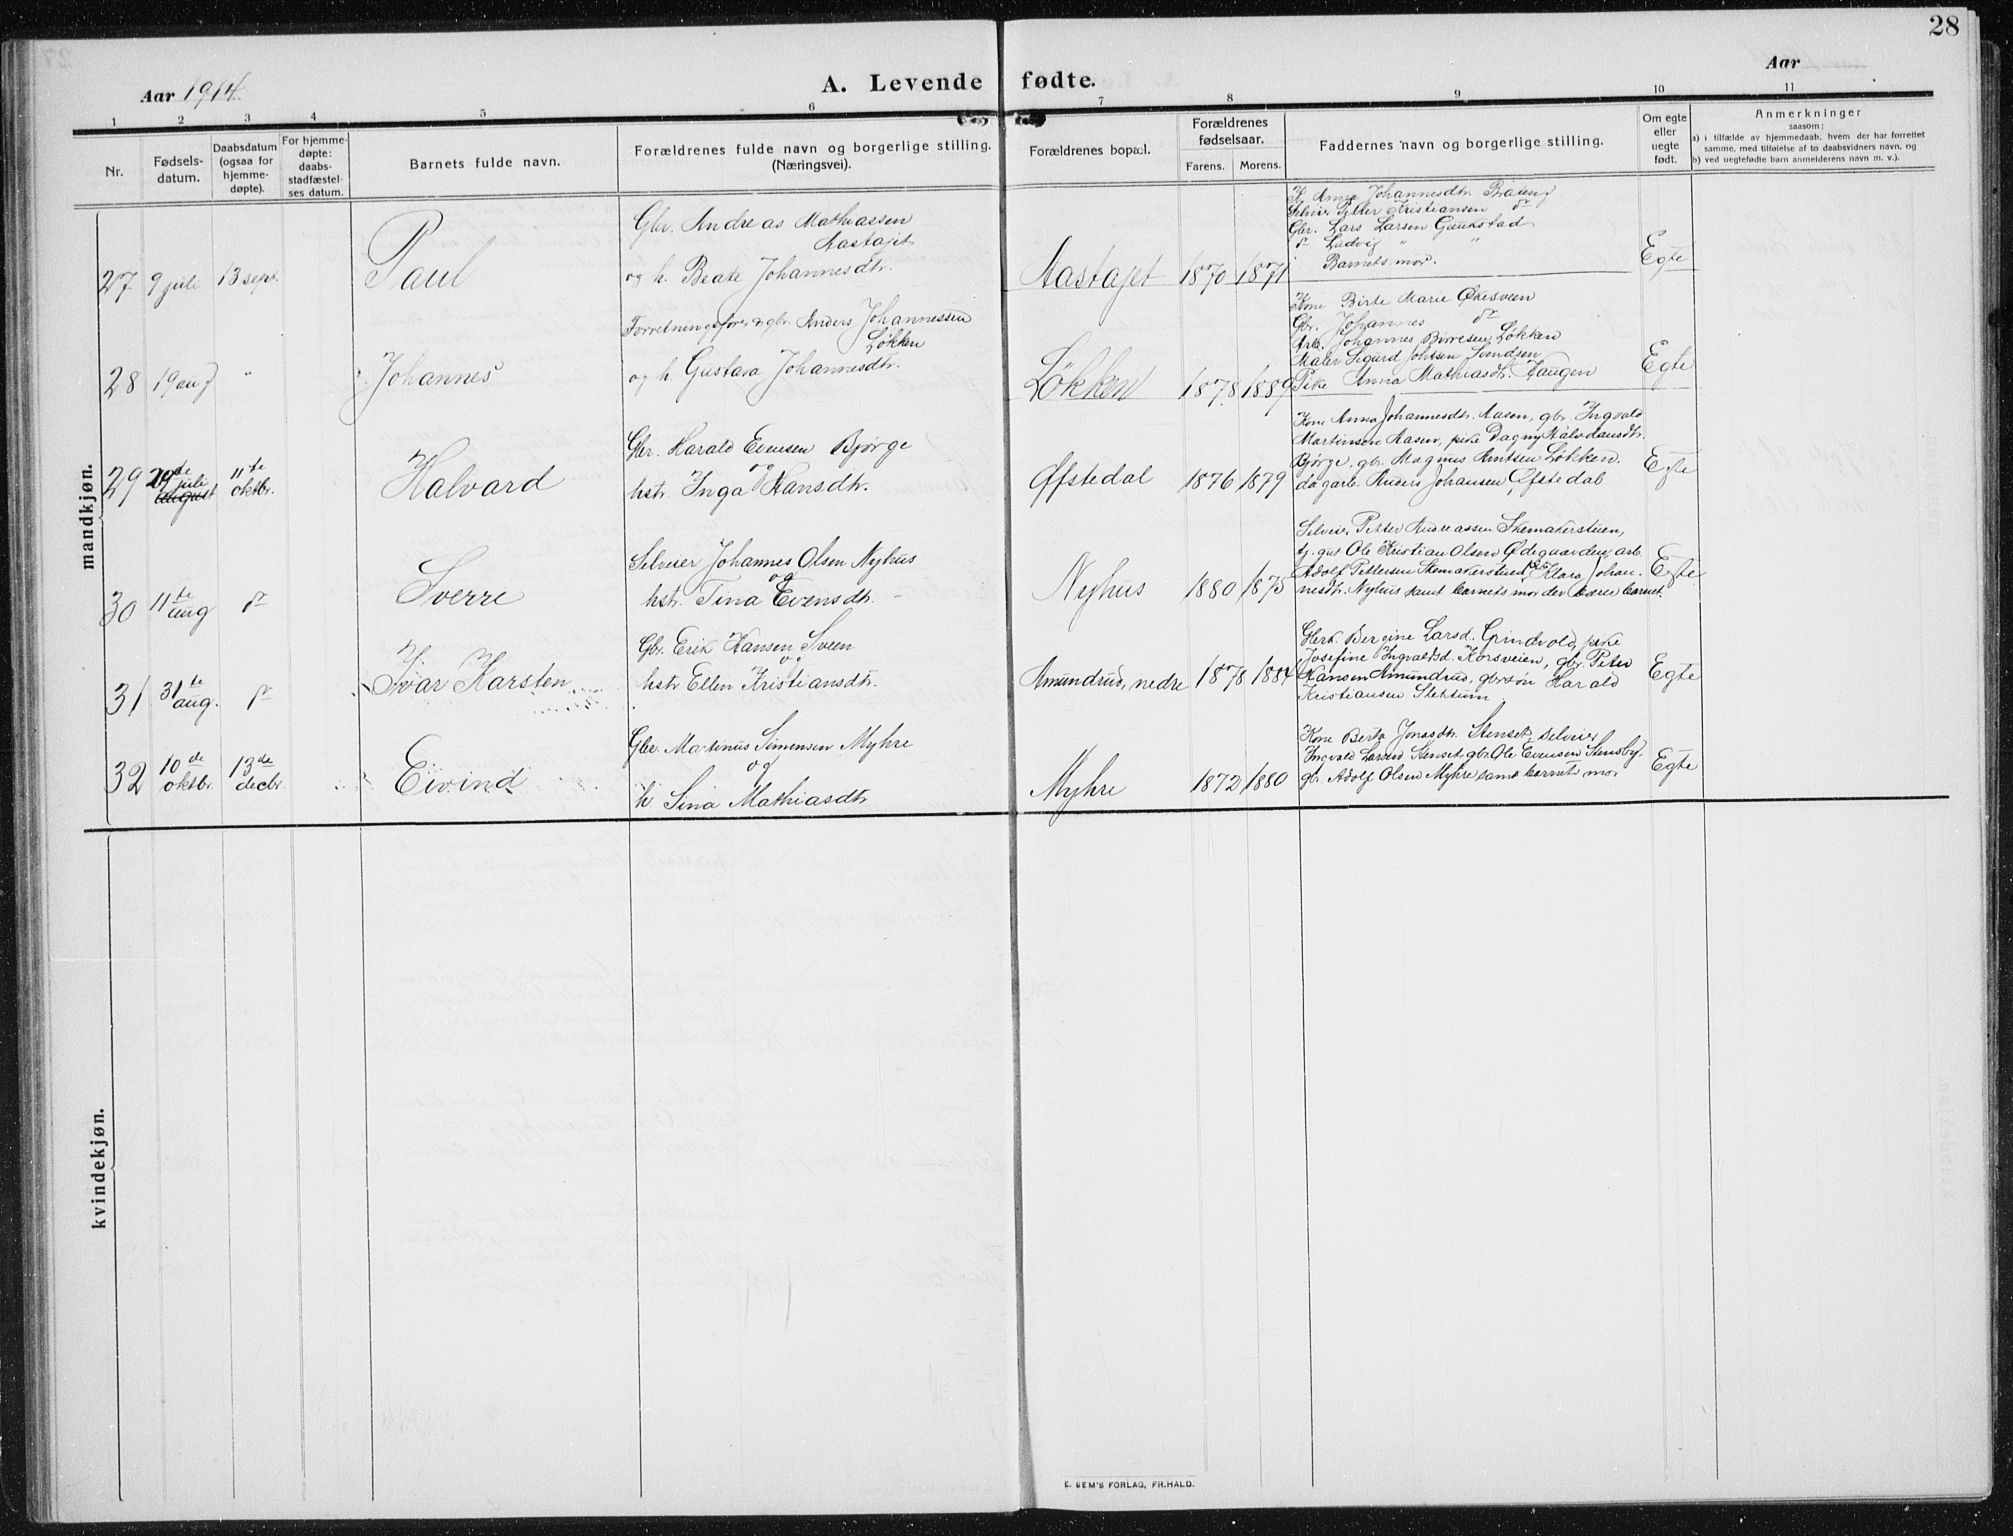 28
Aar 1914.
A. Levende fødte.
Aar
1 2 3 4 5 6 7 8 9 10 11
Nr.
Fødsels-
datum.
Daabsdatum
(ogsaa for
hjemme-
døpte).
For hjemme-
døpte:
daabs-
stadfæstel-
ses datum.
Barnets fulde navn.
Forældrenes fulde navn og borgerlige stilling.
(Næringsvei).
Forældrenes bopæl.
Forældrenes
fødselsaar.
Farens. Morens.
Faddernes navn og borgerlige stilling.
Om egte
eller
uegte
født.
Anmerkninger
saasom:
a) i tilfælde av hjemmedaab, hvem der har forrettet
samme, med tilføielse af to daabsvidners navn, og
b) ved uegtefødte barn anmelderens navn m. v.).
mandkjøn.
27 9 juli 13 sep. Paul
Gbr. Andreas Mathiassen
Aastajet
og h. Beate Johannesdtr.
Aastajet 1870 1871
K. Anna Johannesdtr. Braten
Selveier Petter Kristiansen do
Gbr. Lars Larsen Gaukstad
do Ludvig " "
Barnets mor.
Egte
28 19 aug " Johannes
Forretningsfører & gbr. Anders Johannessen
Løkken
og h. Gustava Johannesdtr.
Løkken 1878 1889
Kone Birte Marie Økesveen
Gbr. Johannes do
Arb. Johannes Børresen Løkken
Maler Sigurd Johsen Svendsen
Pike Anna Mathiasdtr. Haugen
Egte
29 29de juli august 11te oktbr. Halvard
Gbr. Harald Evensen Bjørge
og
hstr. Inga Hansdtr.
Øfstedal 1876 1879
Kone Anna Johannesdtr. Aasen, gbr. Ingvald
Martinsen Aasen, pike Dagny Halvdansdtr.
Bjørge, gbr. Magnus Arntsen Løkken.
dagarb. Anders Johansen Øfstedal
Egte
30 11te aug do Sverre
Selveier Johannes Olsen Nyhus
og
hstr. Tina Evensdtr.
Nyhus 1880 1875
Selveier Petter Andreassen Skomakerstuen,
tj. gut Ole Kristian Olsen Ødegaarden, arb.
Adolf Pettersen Skomakerstuen, pike Klara Johan-
nesdtr. Nyhus samt barnets mor der bærer barnet.
Egte
31 31te aug. do Ivar Karsten
Gbr. Erik Hansen Sveen
og
hstr Ellen Kristiansdtr.
Amundrud, nedre 1878 1884
Gbrk. Bergine Larsd. Grindvold, pike
Josefine Ingvaldsd. Korsveien, gbr. Peter
Hansen Amundrud, gbrsøn Harald
Kristiansen Stensum
Egte
32 10de oktbr. 13de decbr. Eivind
Gbr. Martinus Simensen Myhre
og
h Sina Mathiasdtr
Myhre 1872 1880
Kone Berta Jonasdtr. Stenset, selveier
Ingvald Larsen Stenset, gbr. Ole Evensen Stensby,
gbr. Adolf Olsen Myhre samt barnets mor
Egte
kvindekjøn.
E. SEM'S FORLAG, FR.HALD.